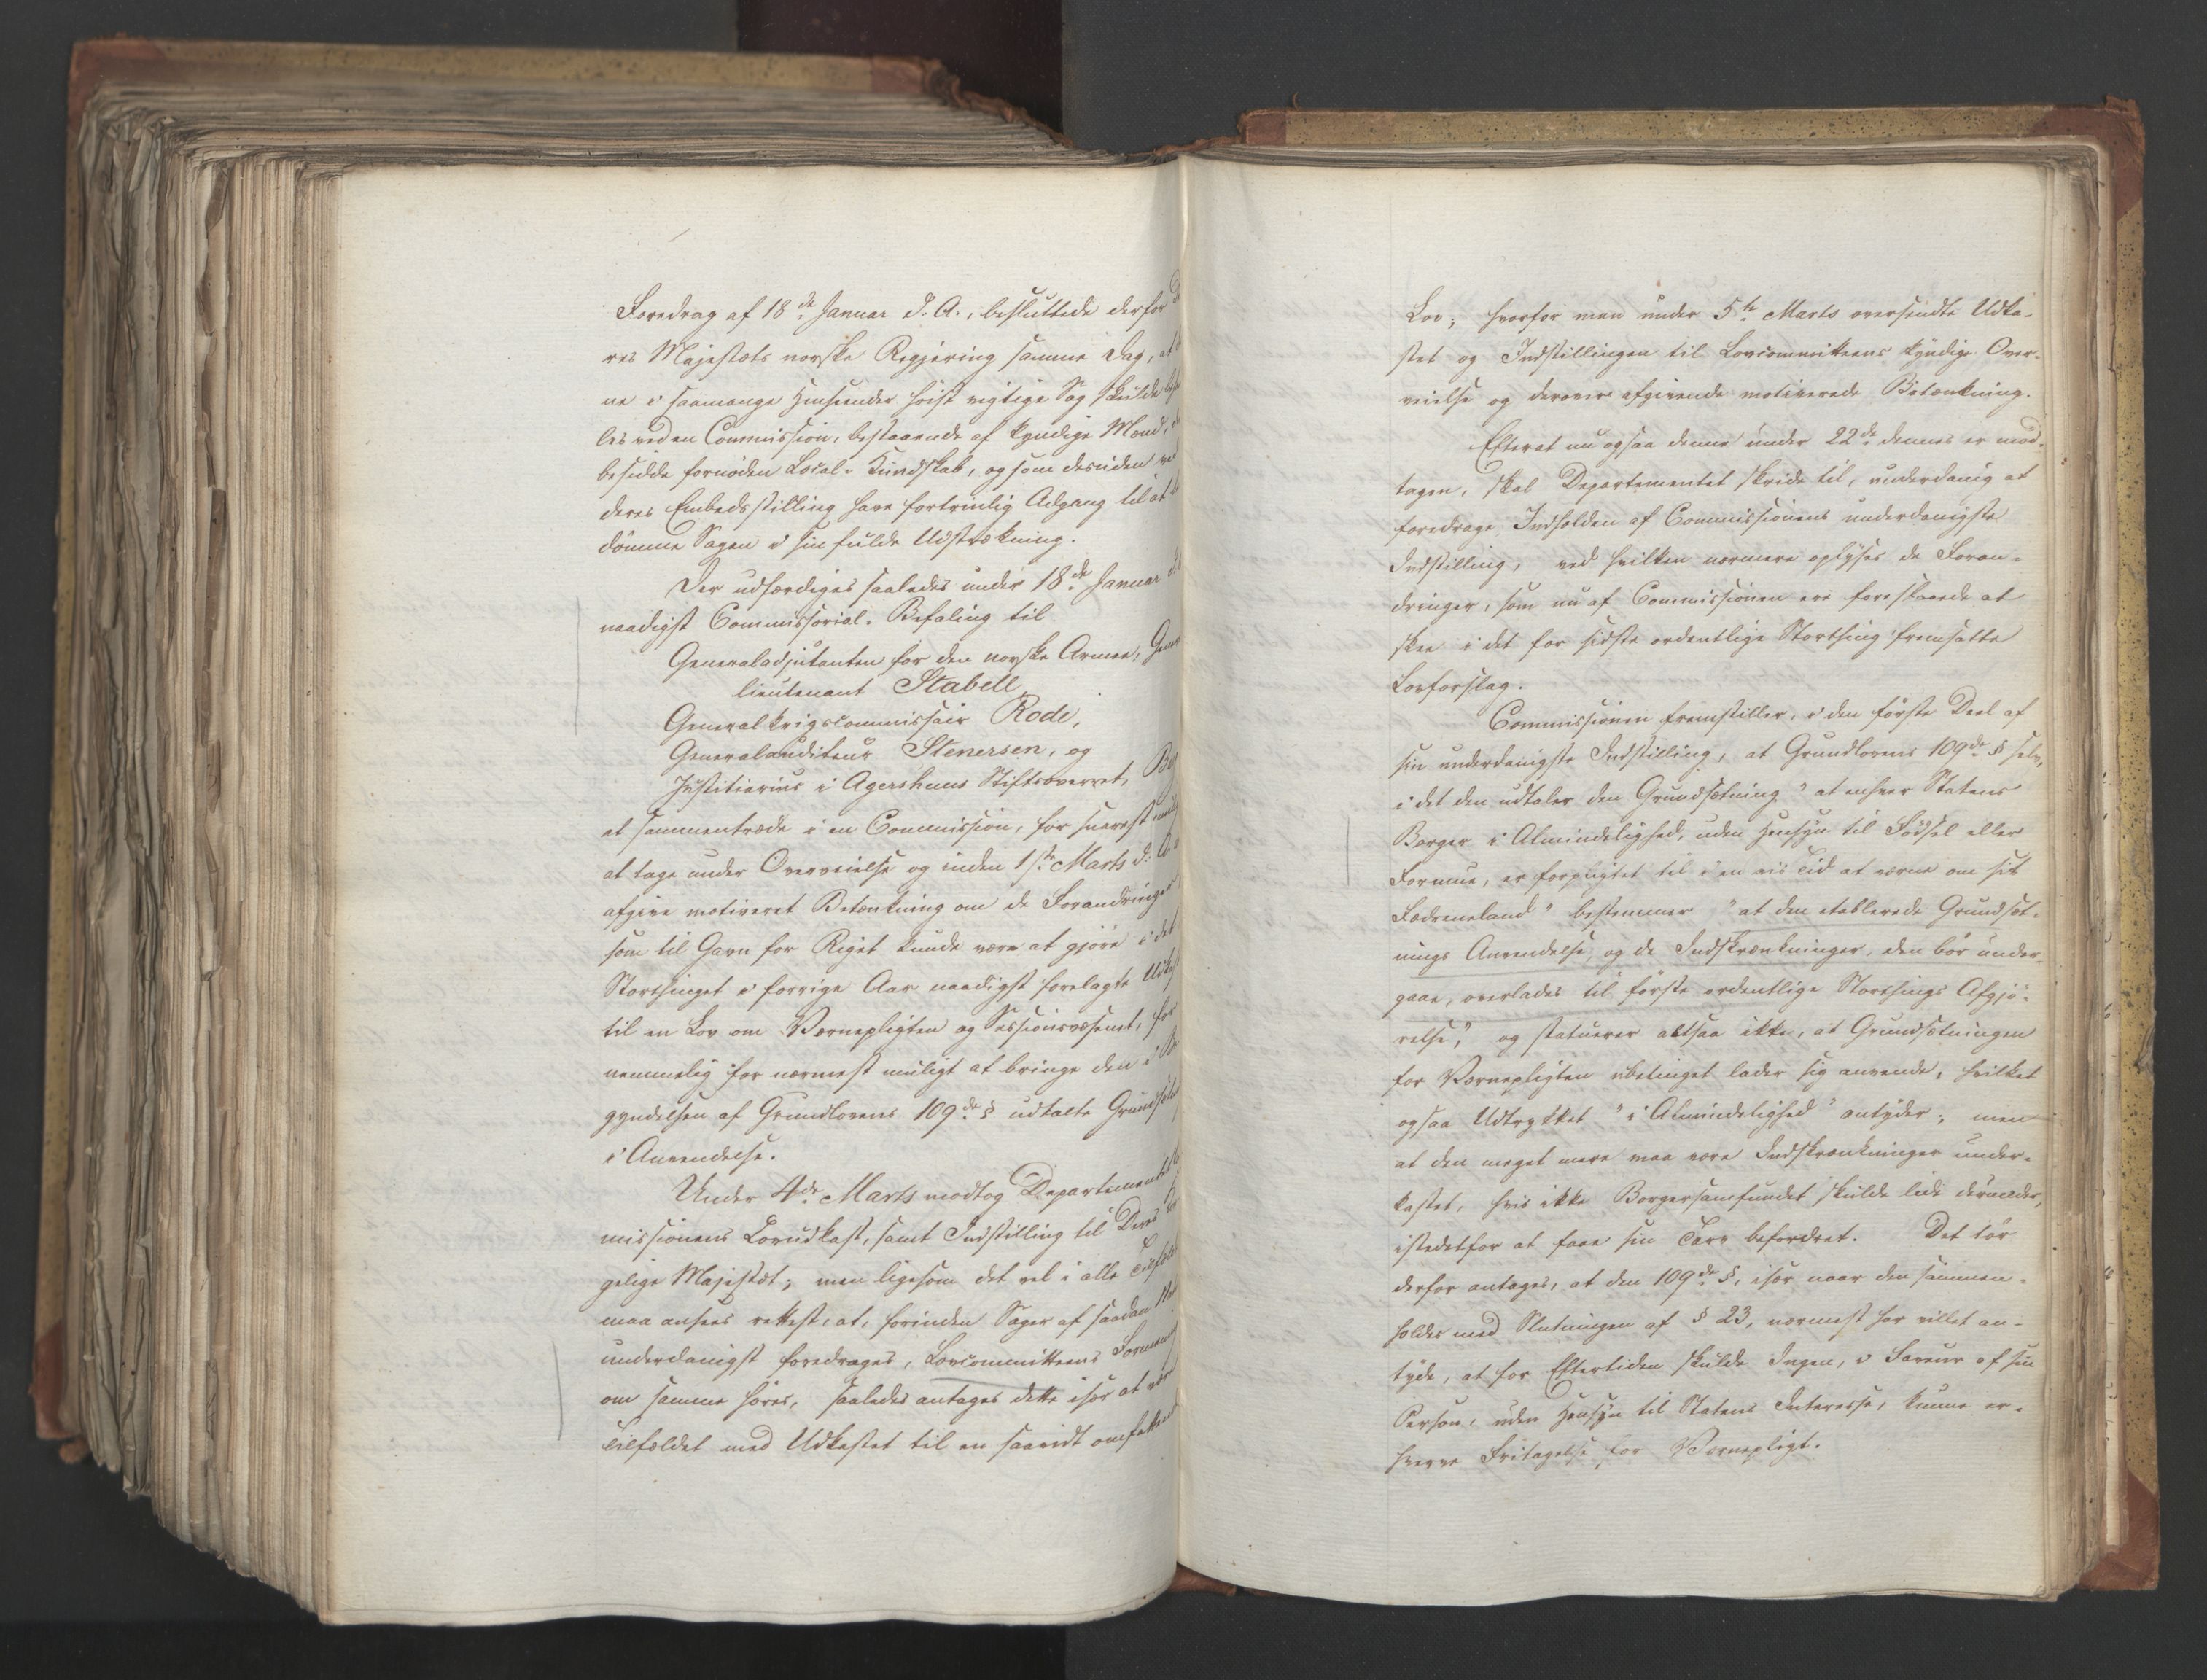 Foredrag af 18de Januar d. A., besluttede derfor
res Majestæts norske Regjering samme Dag, at
ne i saamange Henseender høist vigtige Sag skulde
les ved en Commission, bestaaende af kyndige Mænd,
besidde fornøden Local-Kundskab, og som desuden ved
deres Embedsstilling have fortrinlig Adgang til at
dømme Sagen i sin fulde Udstrækning.
Der udfærdiges saaledes under 18de Januar
naadigst Commissorial-Befaling til
Generaladjutanten for den norske Armee,
lieutenant Stabell,
Generalkrigscommissair Rode,
Generalauditeur Stenersen, og
Justitiarius i Agershuus Stiftsoverret,
at sammentræde i en Commission, for snarest
at tage under Overveielse og inden 1ste Marts d. A.
afgive motiveret Betænkning om de Forandringer
som til Gavn for Riget kunde være at gjøre i det
Storthinget i forrige Aar naadigst forelagte
til en Lov om Værnepligten og Sessionsvæsenet, for
nemmelig for nærmest muligt at bringe den i
gyndelsen af Grundlovens 109de § udtalte
i Anvendelse.
Under 4de Marts modtog Departementet
missionens Lovudkast, samt Indstilling til Deres
gelige Majestæt; men ligesom det vel i alle
maa ansees rettest, at, forinden Sager af saadan
underdanigst foredrages, Lovcommitteens
om samme høres, saaledes antages dette især at
Tilfældet med Udkastet til en saavidt
Lov; hvorfor man under 5te Marts oversendte Udka-
stet og Indstillingen til Lovcommitteens kyndige Over-
veielse og derover afgivende motiverede Betænkning.
Efterat nu ogsaa denne under 22de dennes er mod-
tagen, skal Departementet skride til, underdanig at
foredrage Indholden af Commissionens underdanigste
Indstilling, ved hvilken nærmere oplyses de Foran-
dringer, som nu af Commissionen ere foreslaaede at
skee i det for sidste ordentlige Storthing fremsatte
Lovforslag.
Commissionen fremstiller, i den første Deel af
sin underdanigste Indstilling, at Grundlovens 109de § selv,
i det den udtaler den Grundsætning "at enhver Statens
Borger i Almindelighed, uden Hensyn til Fødsel eller
Formue, er forpligtet til i en vis Tid at værne om sit
Fædreneland" bestemmer "at den etablerede Grundsæt-
nings Anvendelse, og de Indskrænkninger, den bør under-
gaae, overlades til første ordentlige Storthings Afgjø-
relse," og statuerer altsaa ikke, at Grundsætningen
for Værnepligten ubetinget lader sig anvende, hvilket
ogsaa Udtrykket "i Almindelighed" antyder; men
at den meget mere maa være Indskrænkninger under-
kastet, hvis ikke Borgersamfundet skulde lide derunder,
istedetfor at faae sin Tarv befordret. Det tør
derfor antages, at den 109de §, især naar den sammen-
holdes med Slutningen af § 23, nærmest har villet an-
tyde, at for Eftertiden skulde Ingen, i Faveur af sin
Person, uden Hensyn til Statens Interesse, kunne er-
hverve Fritagelse for Værnepligt.